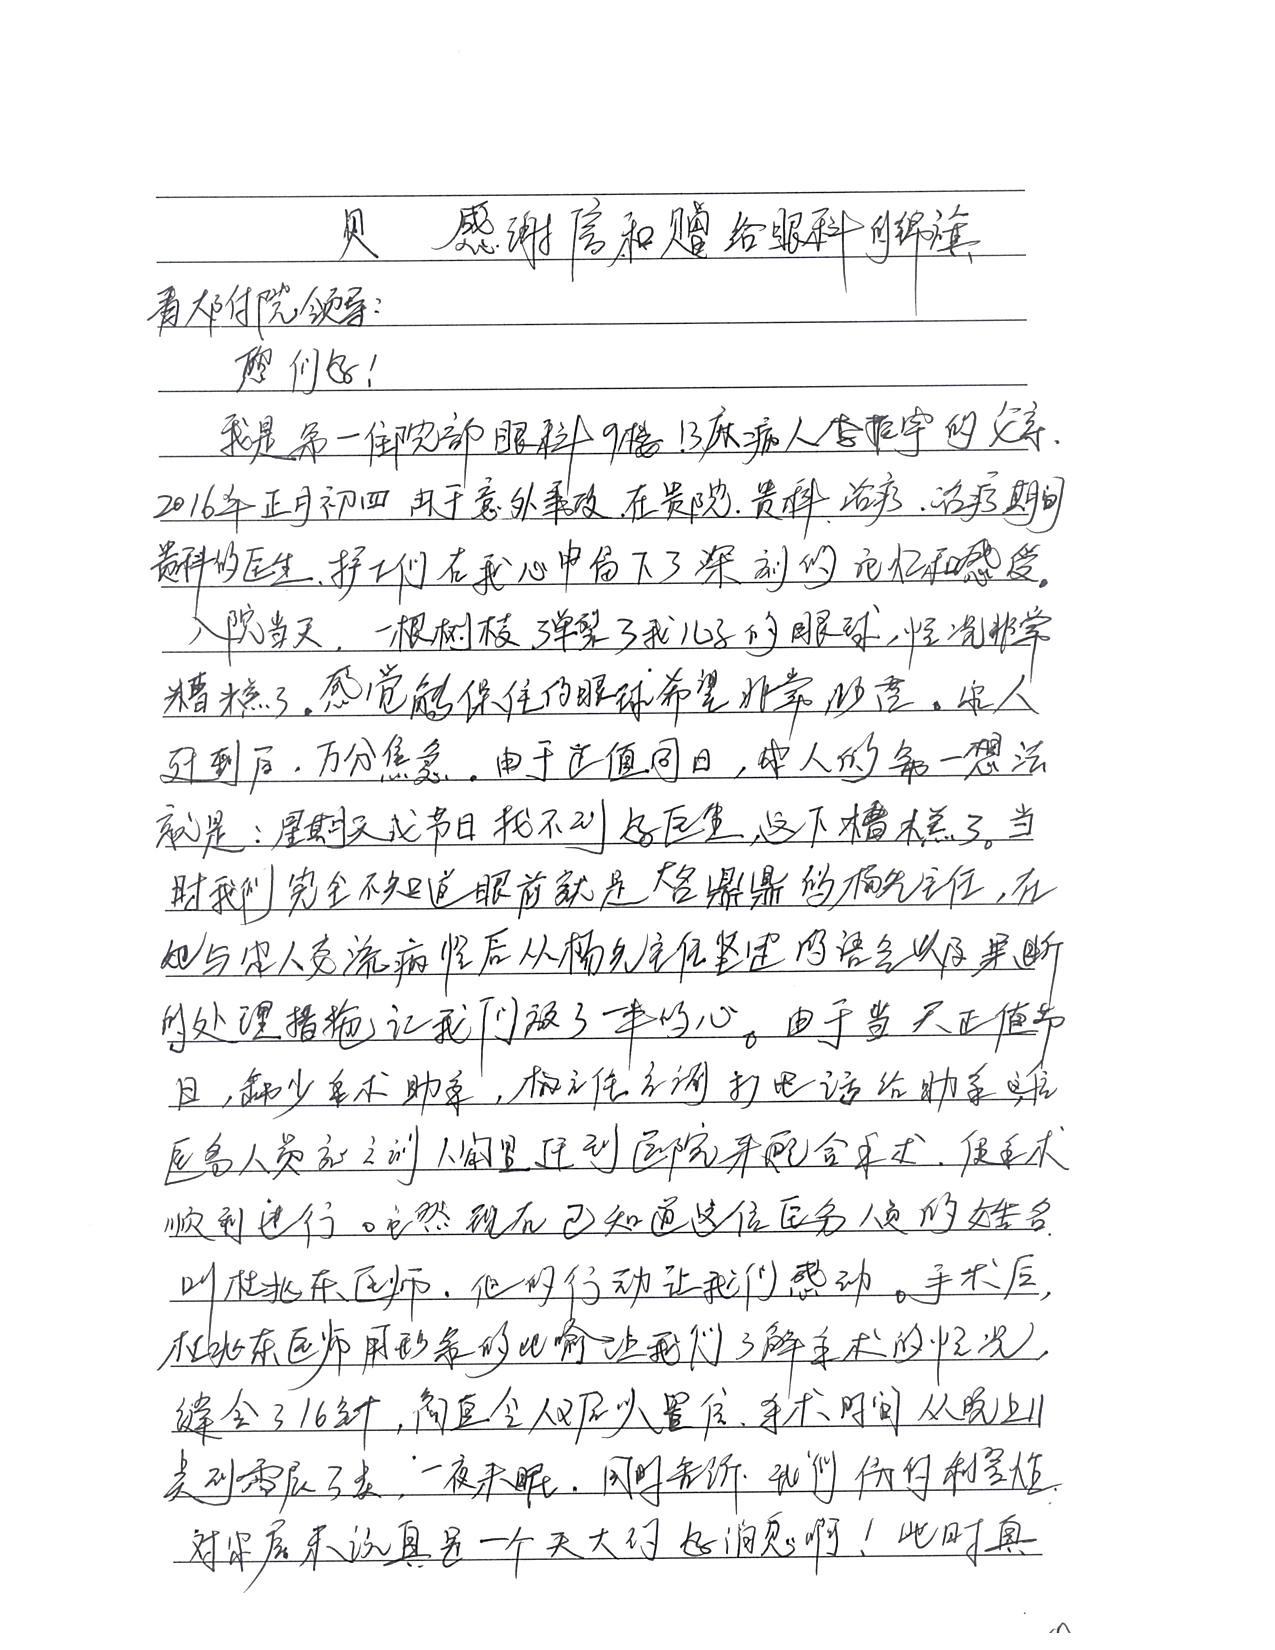 贝 感谢信和赠给眼科的锦旗
青大附院领导:
您们好!
我是第一住院部眼科9楼13床病人李振宇的父亲.
2016年正月初四由于意外事故.在贵院.贵科.治疗.治疗期间
贵科的医生.护士们在我心中留下了深刻的记忆和感受。
入院当天,一根树枝弹裂了我儿子的眼球,情况非常
糟糕了。感觉能保住的眼球希望非常。家人
赶到后.万分焦急.由于正值同日,家人的第一想法
就是:星期天或节日找不到好医生,这下糟糕了。当
时我们完全不知道眼前就是大名鼎鼎的杨先主任,在
她与家人交流病情后从杨先主任坚定的语言以及果断
的处理措施,让我们放了一半的心。由于当天正值节
日,缺少手术助手,杨主任立调打电话给助手
医务人员说立刻人闻里赶到医院来配合手术.使手术
顺利进行。自然现在已知道这位医务人员的姓名
叫杜兆东医师.他的行动让我们感动。手术后,
杜兆东医师用形象的比喻让我们了解手术的情况,
缝合了16针,简直令人难以置信.手术时间从晚上11
点到零晨3点,一夜未眠.同时告诉.我们
对家属来说真是一个天大的好消息啊!此时真